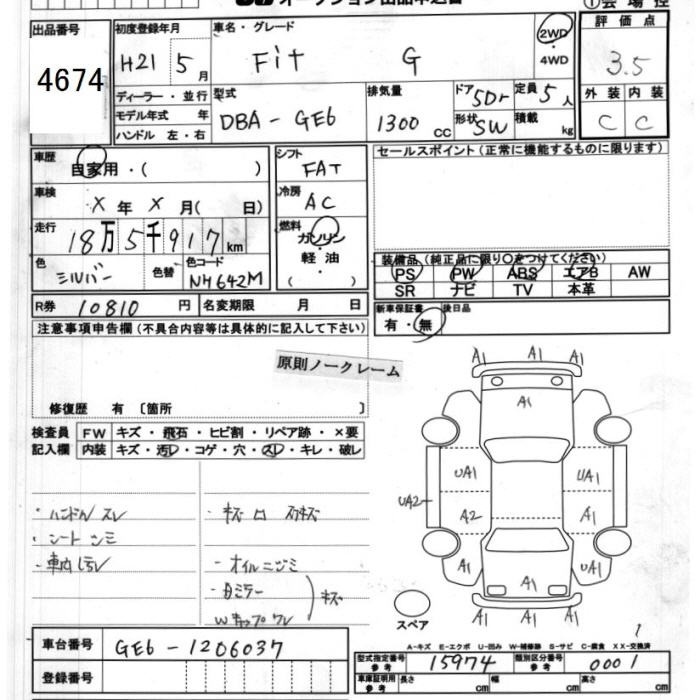 オークション出品申込書
①会場控
出品番号
4674
初度登録年月
H21 5月
車名・グレード
Fit G
2WD
・4WD
評価点
3.5
外装 内装
C C
ディーラー・並行
モデル年式 年
ハンドル 左・右
型式
DBA-GE6
排気量
1300cc
ドア 5Dr
形状 SW
定員 5人
積載 kg
車歴
自家用・( )
シフト
FAT
セールスポイント(正常に機能するものに限ります)
車検
X年 X月( 日)
冷房
AC
走行
18万5千917km
燃料
ガソリン
・
軽油
( )
色
シルバー
色替
色コード
NH642M
装備品(純正品に限り○をつけてください)
PS PW ABS エアB AW
SR ナビ TV 本革
R券 10810円
名変期限 月 日
新車保証書
有・無
後日品
注意事項申告欄(不具合内容等は具体的に記入して下さい)
原則ノークレーム
修復歴 有〔箇所 〕
検査員
記入欄
FW キズ・飛石・ヒビ割・リペア跡・×要
内装 キズ・汚レ・コゲ・穴・スレ・キレ・破レ
・ハンドル スレ
・シート シミ
・車内 汚レ
・オイルニジミ
キズ
A1 A1 A1
A1
UA1 UA1
UA2
A2 A1
A1 UA1
A1
A1 A1 A1
スペア
A-キズ E-エクボ U-凹み W-補修跡 S-サビ C-腐食 XX-交換済
車台番号
GE6-1206037
登録番号
型式指定番号
参考
15974
類別区分番号
参考
0001
車庫証明用
参考
長さ cm
幅 cm
高さ cm